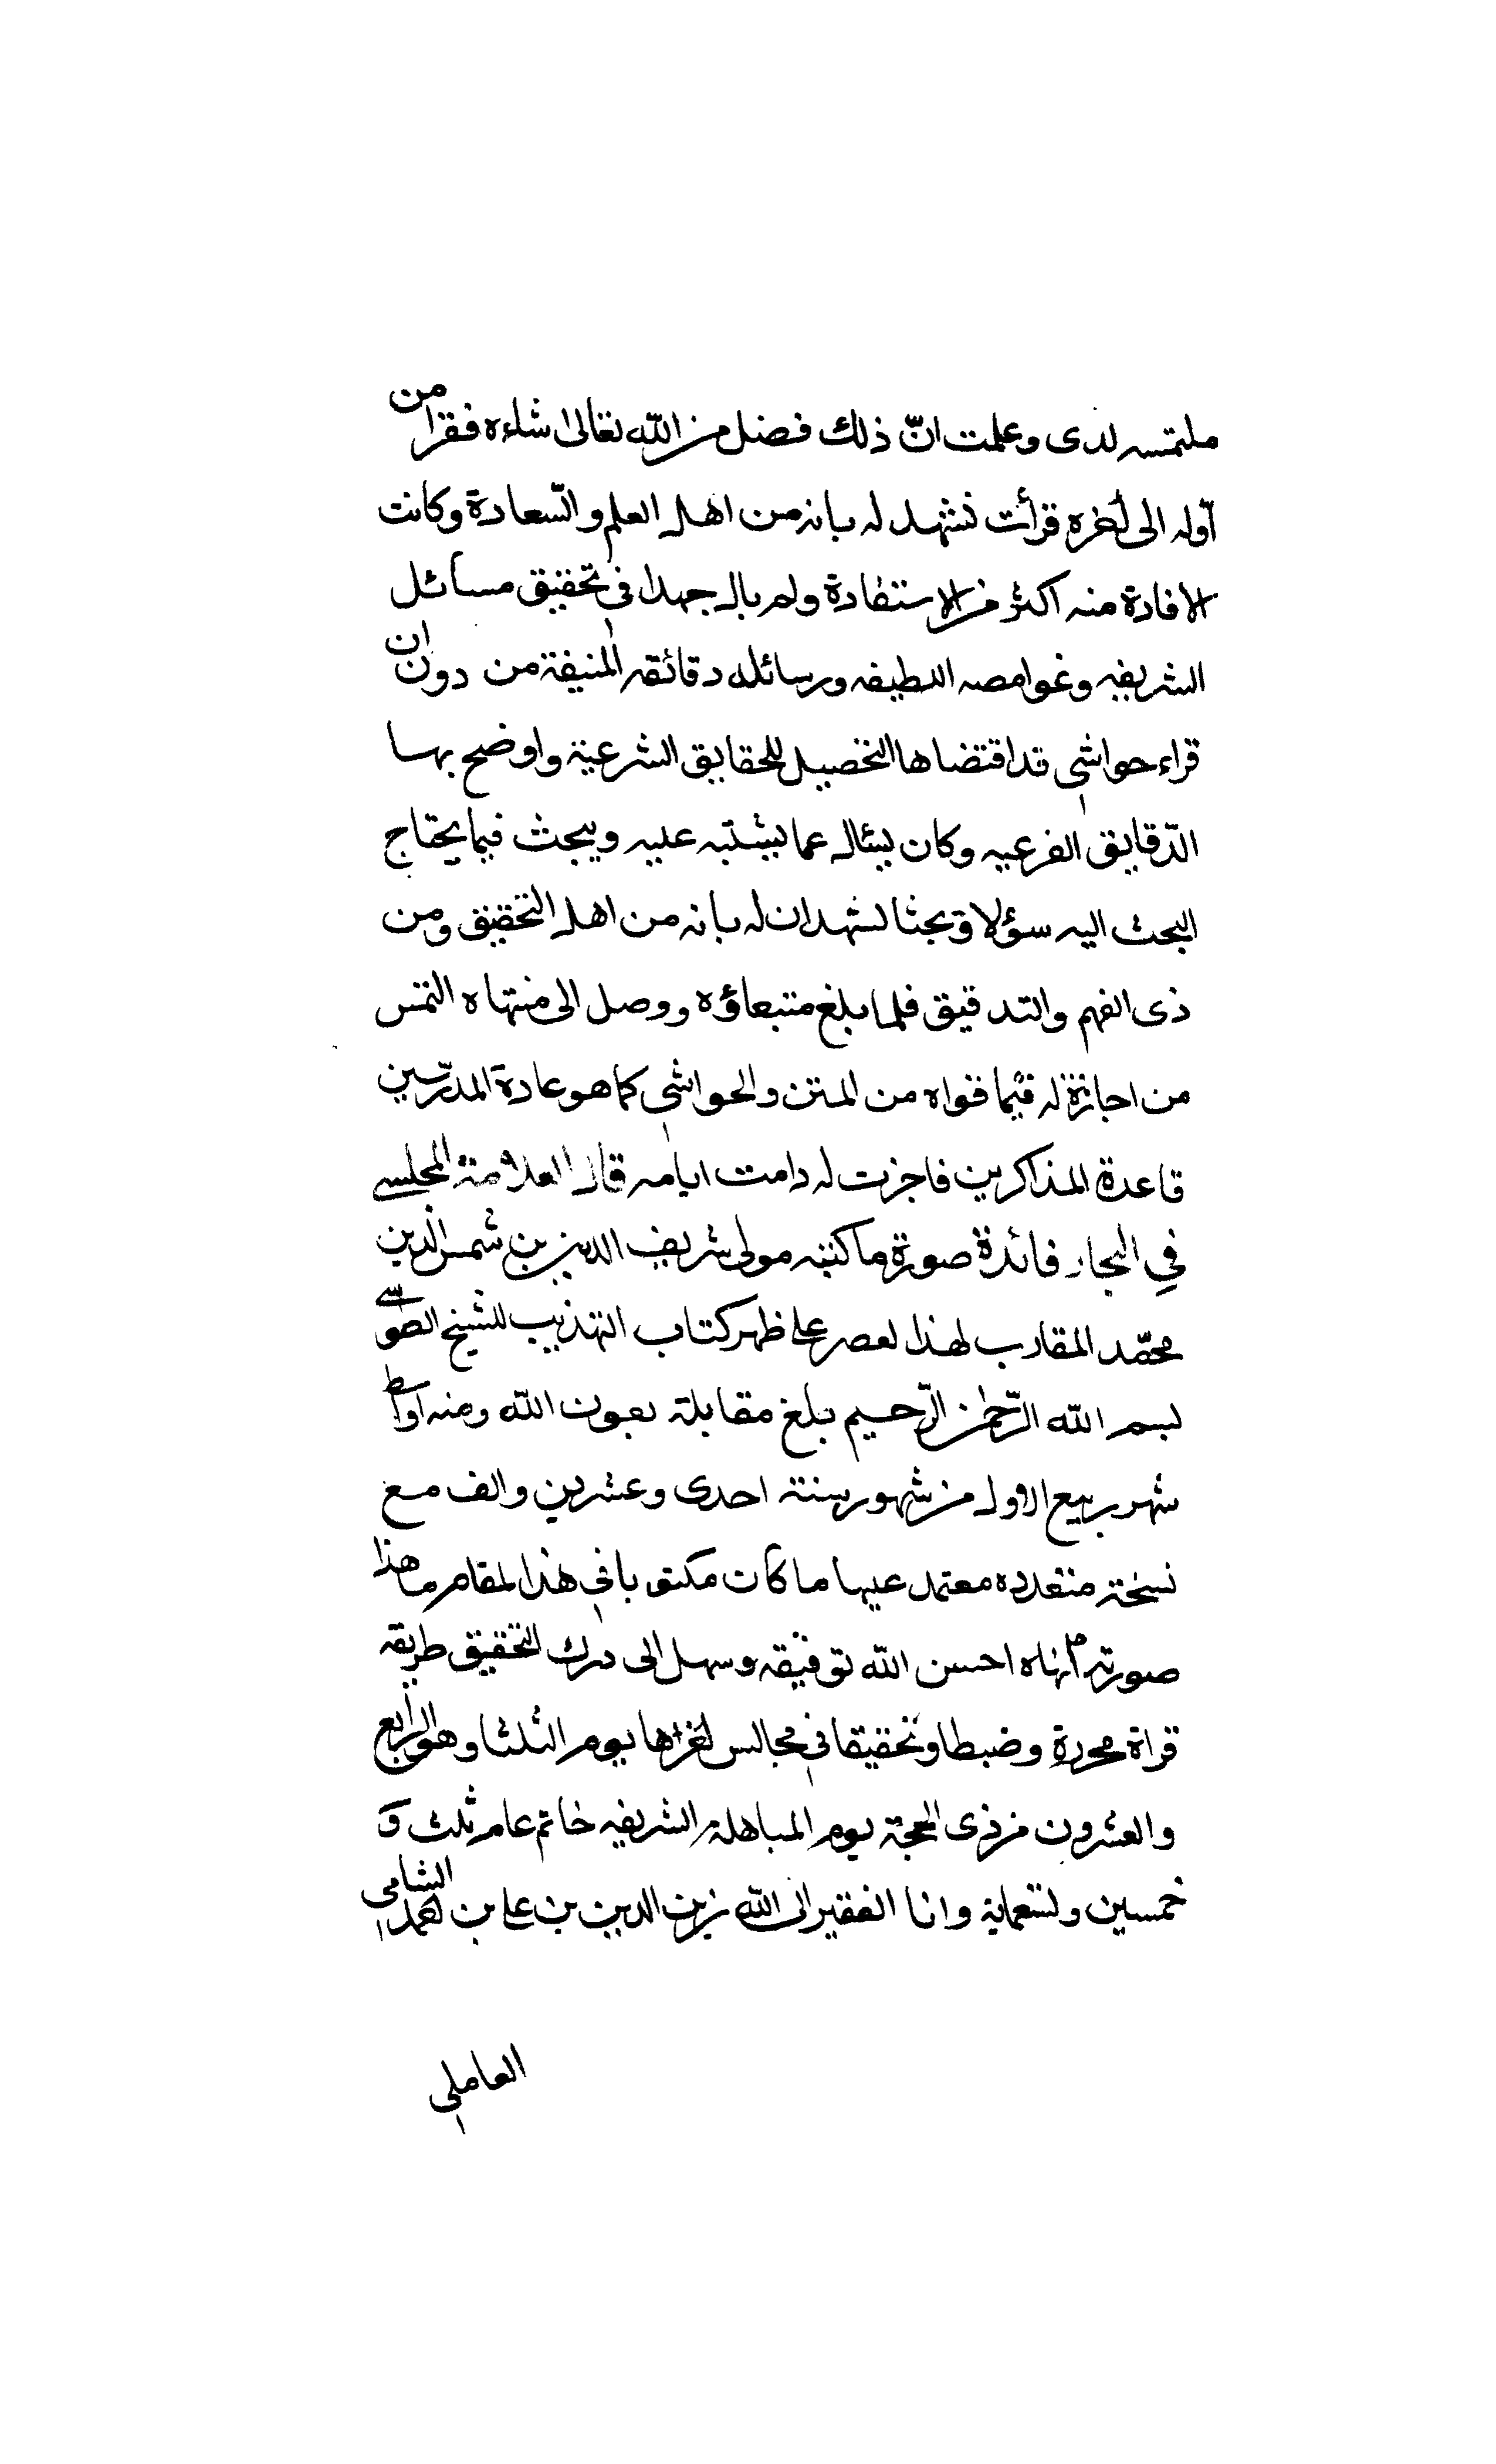 ملتمسه لدى وعلمت انّ ذلك فضل من الله تعالى شاءه فقرا من
اوّله الى اخره قرأت تشهد له بانه من اهل العلم والسّعادة وكانت
الافادة منه اكثر من الاستفادة ولم يال جهدا فى تحقيق مسائل
الشريفه وغوامصه اللطيفه ورسائله دقائقه المنيفة من دون ان
قراء حواشى قد اقتضاها التحصيل للحقايق الشرعية واوضح بها
الدّقايق الفرعيه وكان يسئال عما يشتبه عليه ويبحث فيما يحتاج
البحث اليه سؤلا وبحثا تشهدان له بانه من اهل التحقيق ومن
ذى الفهم والتدقيق فلما بلغ متبعاؤه ووصل الى منتهاه التمس
من اجازة له فيما قواه من المتن والحواشى كما هو عادة المدرّسين
قاعدة المذاكرين فاجزت له دامت ايامه قال العلامة المجلسے
فى البحار فائدة صورة ما كتبه مولى شريف الدين بن شمس الدين
محمّد المقارب لهذا لعصر على ظهر كتاب التهذيب للشيخ الطوسے
بسم الله الرّحمن الرّحيم بلغ مقابلة بعون الله ومنه اواسط
شهر ربيع الاول من شهور سنة احدى وعشرين والف مع
نسخة متعدده معتمد عيها ما كان مكتوبا فى هذا لمقام ما هذا
صورته انهاه احسن الله توفيقه وسهل الى درك التحقيق طريقه
قراة محررة وضبطا وتحقيقا فى مجالس اخرها يوم الثلثا وهو الرابع
والعشرون من ذى الحجة يوم المباهلة الشريفه خاتم عام ثلث و
خمسين وتسعماية وانا الفقير الى الله زين الدين بن على بن احمد الشامى
العاملى